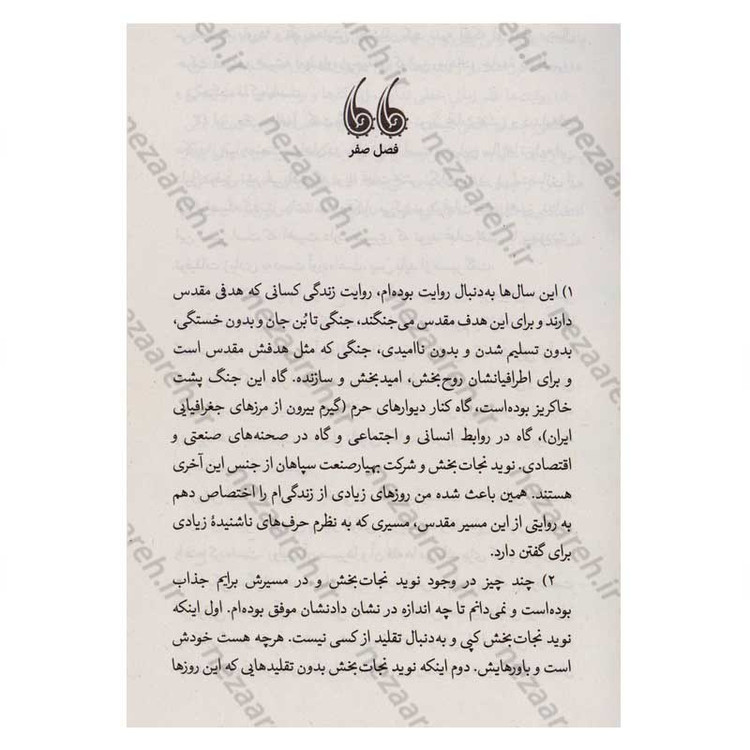 فصل صفر
۱) این سال‌ها به‌دنبال روایت بوده‌ام، روایت زندگی کسانی که هدفی مقدس
دارند و برای این هدف مقدس می‌جنگند، جنگی تا بُن جان و بدون خستگی،
بدون تسلیم شدن و بدون ناامیدی، جنگی که مثل هدفش مقدس است
و برای اطرافیانشان روح‌بخش، امیدبخش و سازنده. گاه این جنگ پشت
خاکریز بوده‌است، گاه کنار دیوارهای حرم (گیرم بیرون از مرزهای جغرافیایی
ایران)، گاه در روابط انسانی و اجتماعی و گاه در صحنه‌های صنعتی و
اقتصادی. نوید نجات‌بخش و شرکت بهیارصنعت سپاهان از جنس این آخری
هستند. همین باعث شده من روزهای زیادی از زندگی‌ام را اختصاص دهم
به روایتی از این مسیر مقدس، مسیری که به نظرم حرف‌های ناشنیدهٔ زیادی
برای گفتن دارد.
۲) چند چیز در وجود نوید نجات‌بخش و در مسیرش برایم جذاب
بوده‌است و نمی‌دانم تا چه اندازه در نشان دادنشان موفق بوده‌ام. اول اینکه
نوید نجات‌بخش کپی و به‌دنبال تقلید از کسی نیست. هرچه هست خودش
است و باورهایش. دوم اینکه نوید نجات‌بخش بدون تقلیدهایی که این روزها
nezaareh.ir
nezaareh.ir
nezaareh.ir
nezaareh.ir
nezaareh.ir
nezaareh.ir
nezaareh.ir
nezaareh.ir
nezaareh.ir